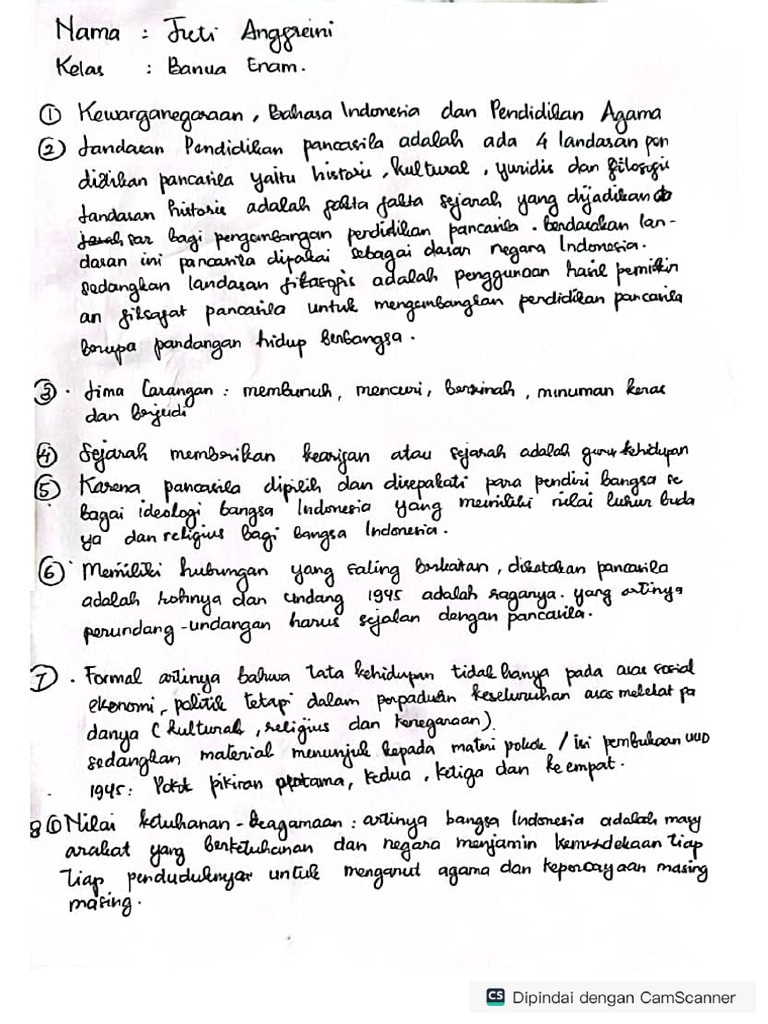 Nama : Juti Anggreini
Kelas : Banua Enam.
① Kewarganegaraan, Bahasa Indonesia dan Pendidikan Agama
② Landasan Pendidikan pancasila adalah ada 4 landasan pen
didikan pancasila yaitu historis, kultural, yuridis dan filosofis
Landasan historis adalah fakta fakta sejarah yang dijadikan da
sar bagi pengembangan pendidikan pancasila. berdasarkan lan-
dasan ini pancasila dipakai sebagai dasar negara Indonesia.
sedangkan landasan filosofis adalah penggunaan hasil pemikir
an filsafat pancasila untuk mengembangkan pendidikan pancasila
berupa pandangan hidup berbangsa.
③ . Lima Larangan : membunuh, mencuri, berzinah, minuman keras
dan berjudi
④ Sejarah memberikan kearifan atau sejarah adalah guru kehidupan
⑤ Karena pancasila dipilih dan disepakati para pendiri bangsa se
bagai ideologi bangsa Indonesia yang memiliki nilai luhur buda
ya dan religius bagi bangsa Indonesia.
⑥ Memiliki hubungan yang saling berkaitan, dikatakan pancasila
adalah rohnya dan undang 1945 adalah raganya. yang artinya
perundang-undangan harus sejalan dengan pancasila.
⑦ . Formal artinya bahwa tata kehidupan tidak hanya pada asas sosial
ekonomi, politik tetapi dalam perpaduan keseluruhan asas melekat pa
danya (kultural, religius dan kenegaraan)
sedangkan material menunjuk kepada materi pokok / isi pembukaan UUD
1945: Pokok pikiran pertama, kedua, ketiga dan keempat.
8 Nilai ketuhanan - keagamaan : artinya bangsa Indonesia adalah masy
arakat yang berketuhanan dan negara menjamin kemerdekaan tiap
tiap penduduknya untuk menganut agama dan kepercayaan masing
masing.
CS Dipindai dengan CamScanner